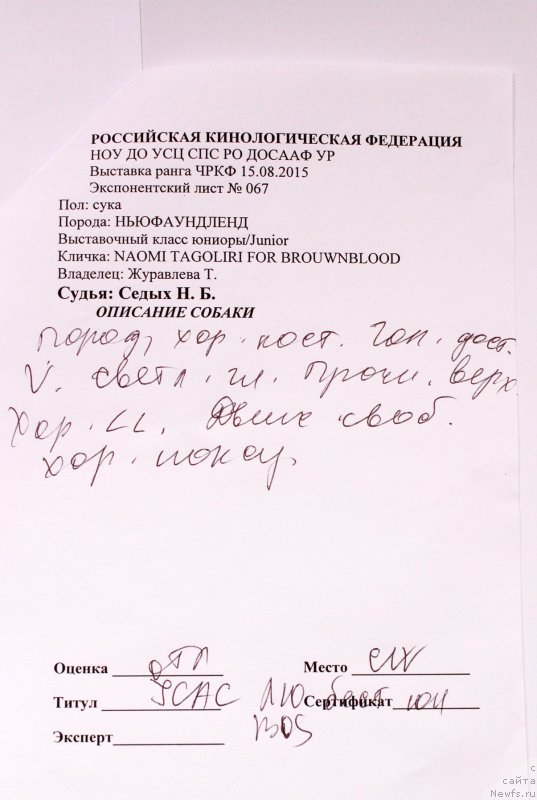 РОССИЙСКАЯ КИНОЛОГИЧЕСКАЯ ФЕДЕРАЦИЯ
НОУ ДО УСЦ СПС РО ДОСААФ УР
Выставка ранга ЧРКФ 15.08.2015
Экспонентский лист № 067
Пол: сука
Порода: НЬЮФАУНДЛЕНД
Выставочный класс юниоры/Junior
Кличка: NAOMI TAGOLIRI FOR BROUWNBLOOD
Владелец: Журавлева Т.
Судья: Седых Н. Б.
ОПИСАНИЕ СОБАКИ
Пород, хор. кост. Гол. дост.
V. светл. гл. Прочн. верх.
Хор. LL. Движ своб.
хор. показ.
Оценка отл Место CW
Титул JCAC ЛЮ Сертификат бест юн
Эксперт BOS
с
сайта
Newfs.ru